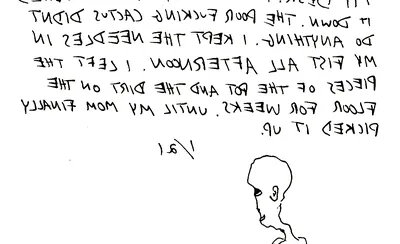 IT DOWN. THE POOR FUCKING CACTUS DIDNT
DO ANYTHING. I KEPT THE NEEDLES IN
MY FIST ALL AFTERNOON. I LEFT THE
PIECES OF THE POT AND THE DIRT ON THE
FLOOR FOR WEEKS. UNTIL MY MOM FINALLY
PICKED IT UP.